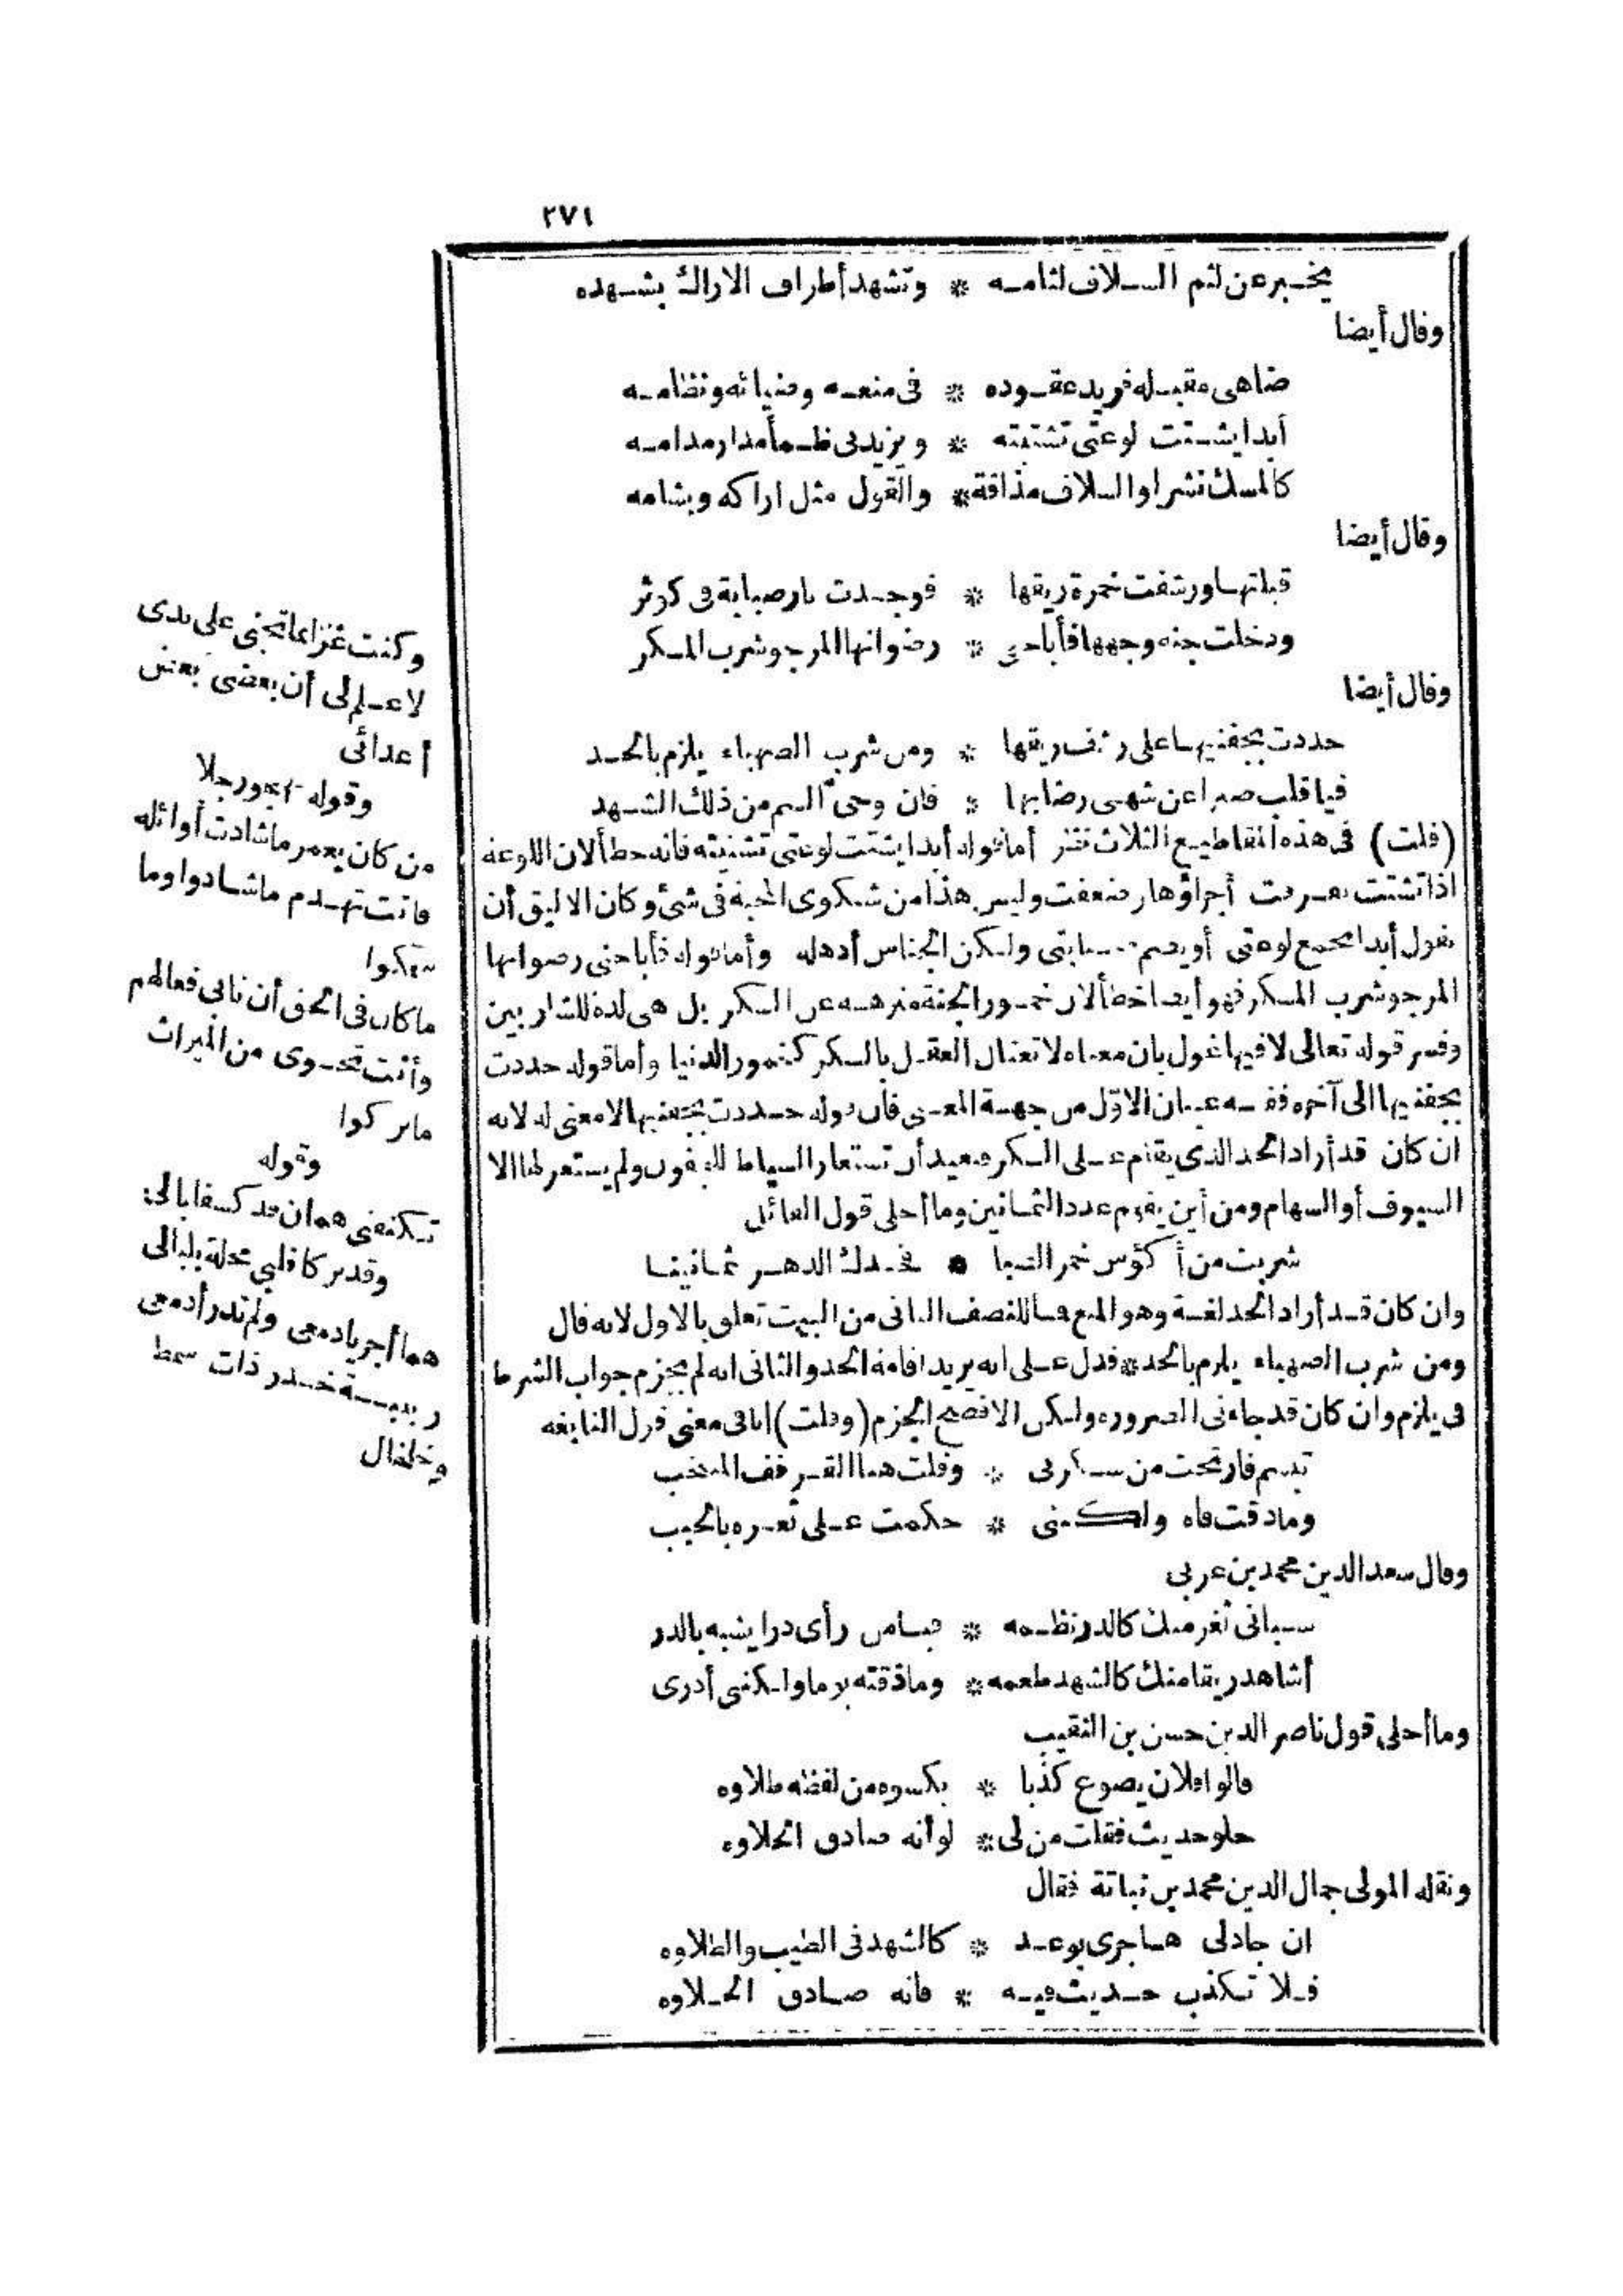 ٢٧١
يخبر عن لثم السلاف لثامه * وتشهد أطراف الاراك بشهده
وقال أيضا
ضاهى مقبله فريد عقوده * فى منعه وضيائه ونظامه
أبدا يشتت لوعتى تشتيته * ويزيدنى ظمأ مدار مدامه
كالمسك نشرا والسلاف مذاقة * والقول مثل اراكه وبشامه
وقال أيضا
قبلتها ورشفت خمرة ريقها * فوجدت نار صبابة فى كوثر
ودخلت جنه وجهها فأباحنى * رضوانها المرجو شرب المسكر
وقال أيضا
حددت بجفنيها على رشف ريقها * ومن شرب الصهباء يلزم بالحد
فيا قلب صبرا عن شهى رضابها * فان وحى السم من ذلك الشهد
(قلت) فى هذه المقاطيع الثلاث نظر أما قوله أبدا يشتت لوعتى تشتيته فانه خطأ لان اللوعة
اذا تشتت تفرقت أجزاؤها وضعفت وليس هذا من شكوى المحبة فى شئ وكان الاليق أن
يقول أبدا يجمع لوعتى أو يضم صبابتى ولكن الجناس أذهله وأما قوله فأباحنى رضوانها
المرجو شرب المسكر فهو أيضا خطأ لان خمور الجنة منزهه عن السكر بل هى لذة للشاربين
وفسر قوله تعالى لا فيها غول بان معناه لا تغتال العقل بالسكر كخمور الدنيا وأما قوله حددت
بجفنيها الى آخره ففيه عيبان الاول من جهة المعنى فان قوله حددت بجفنيها لا معنى له لانه
ان كان قد أراد الحد الذى يقام على السكر فبعيد أن تستعار السياط للجفون ولم يستعر لها الا
السيوف أو السهام ومن أين يقوم عدد الثمانين وما أحلى قول القائل
شربت من أكؤس خمر الصبا * فحدك الدهر ثمانينا
وان كان قد أراد الحد لغة وهو المنع فما للنصف الثانى من البيت تعلق بالاول لانه قال
ومن شرب الصهباء يلزم بالحد * فدل على انه يريد اقامة الحد والثانى انه لم يجزم جواب الشرط
فى يلزم وان كان قد جاء فى الضروره ولكن الافصح الجزم (وقلت) انا فى معنى قول النابغه
تبسم فارتحت من سكرتى * وقلت هما القرقف المنتخب
وما ذقت فاه ولكننى * حكمت على ثغره بالحبب
وقال سعد الدين محمد بن عربى
سبانى ثغر منك كالدر نظمه * فيا من رأى درا يشبه بالدر
أشاهد ريقا منك كالشهد طعمه * وما ذقته يوما ولكننى أدرى
وما أحلى قول ناصر الدين حسن بن النقيب
قالوا فلان يصوغ كذبا * يكسوه من لفظه طلاوه
حلو حديث فقلت من لى * لو أنه صادق الحلاوه
ونقله المولى جمال الدين محمد بن نباتة فقال
ان جاد لى هاجرى بوعد * كالشهد فى الطيب والطلاوه
فلا تكذب حديث فيه * فانه صادق الحلاوه
وكنت غزا عاتجنى على يدى
لا علم لى أن بعضى بعض
أعدائى
وقوله يهجو رجلا
من كان يعمر ما شادت أوائله
فانت تهدم ما شادوا وما
سمكوا
ما كان فى الحق أن تابى فعالهم
وأنت تحوى من الميراث
ما تركوا
وقوله
تكنفنى همان قد كسفا بالى
وقد تركا قلبى محلة بلبالى
هما أجريا دمعى ولم تدر أدمعى
ربيبة خدر ذات سمط
وخلخال